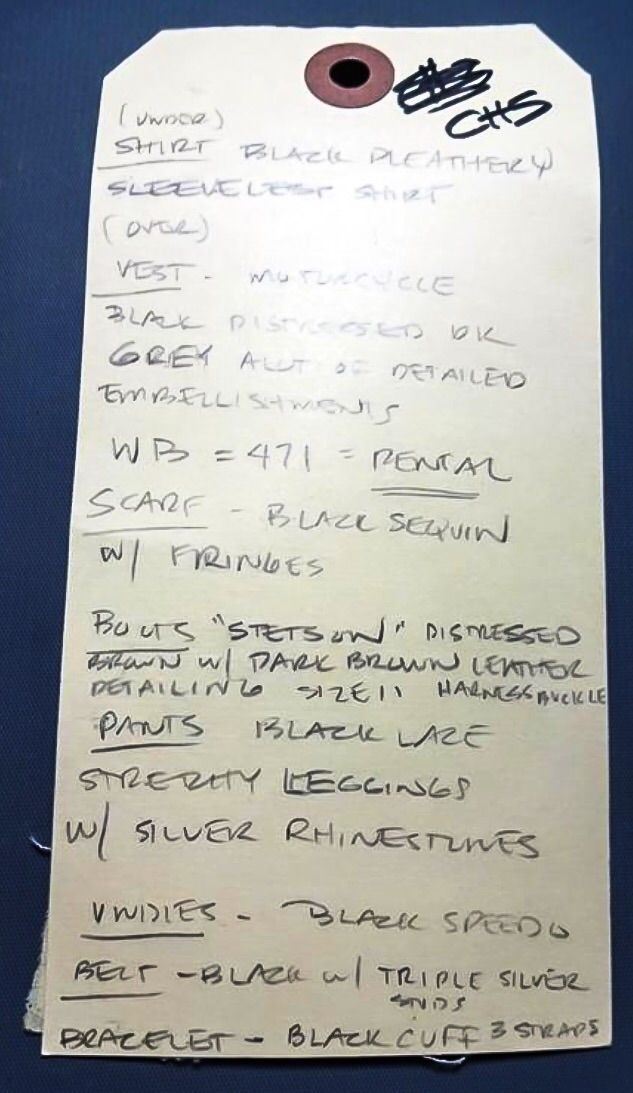 CHS
(UNDER)
SHIRT BLACK PLEATHERY
SLEEVELESS SHIRT
(OVER)
VEST - MOTORCYCLE
BLACK DISTRESSED DK
GREY ALOT OF DETAILED
EMBELLISHMENTS
WB = 471 = RENTAL
SCARF - BLACK SEQUIN
W/ FRINGES
BOOTS "STETSON" DISTRESSED
BROWN W/ DARK BROWN LEATHER
DETAILING SIZE 11 HARNESS BUCKLE
PANTS BLACK LACE
STRETCHY LEGGINGS
W/ SILVER RHINESTONES
UNDIES - BLACK SPEEDO
BELT - BLACK W/ TRIPLE SILVER
STUDS
BRACELET - BLACK CUFF 3 STRAPS